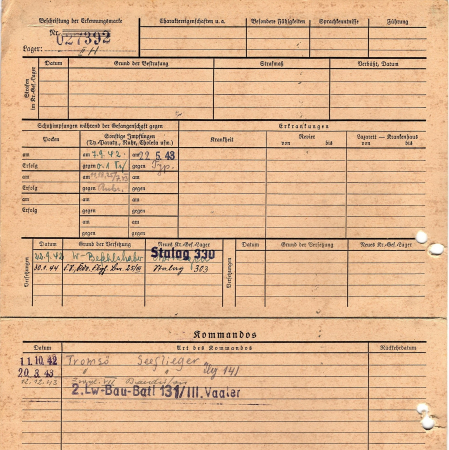 Beschriftung der Erkennungsmarke
Charaktereigenschaften u. a.
Besondere Fähigkeiten
Sprachkenntnisse
Führung
Nr. 027392
Lager:
Strafen im Kr.-Gef.-Lager
Datum
Grund der Bestrafung
Strafmaß
Verbüßt, Datum
Schutzimpfungen während der Gefangenschaft gegen
Erkrankungen
Pocken
Sonstige Impfungen
(Ty.-Paraty., Ruhr, Cholera usw.)
Krankheit
Revier
von bis
Lazarett - Krankenhaus
von bis
am am 7.9.42. am 22 5. 43
Erfolg gegen gegen Typ.
am am am
Erfolg gegen Ruhr. gegen
am am am
Erfolg gegen gegen
am am
gegen gegen
Versetzungen
Datum
Grund der Versetzung
Neues Kr.-Gef.-Lager
Versetzungen
Datum
Grund der Versetzung
Neues Kr.-Gef.-Lager
.9.42 Stalag 330
30.1.44 Stalag 303
Kommandos
Datum
Art des Kommandos
Rückkehrdatum
11.10.42 Tromsö Seeflieger
20.3.43 " "
12.12.43
2.Lw-Bau-Batl 131/III. Vaaler